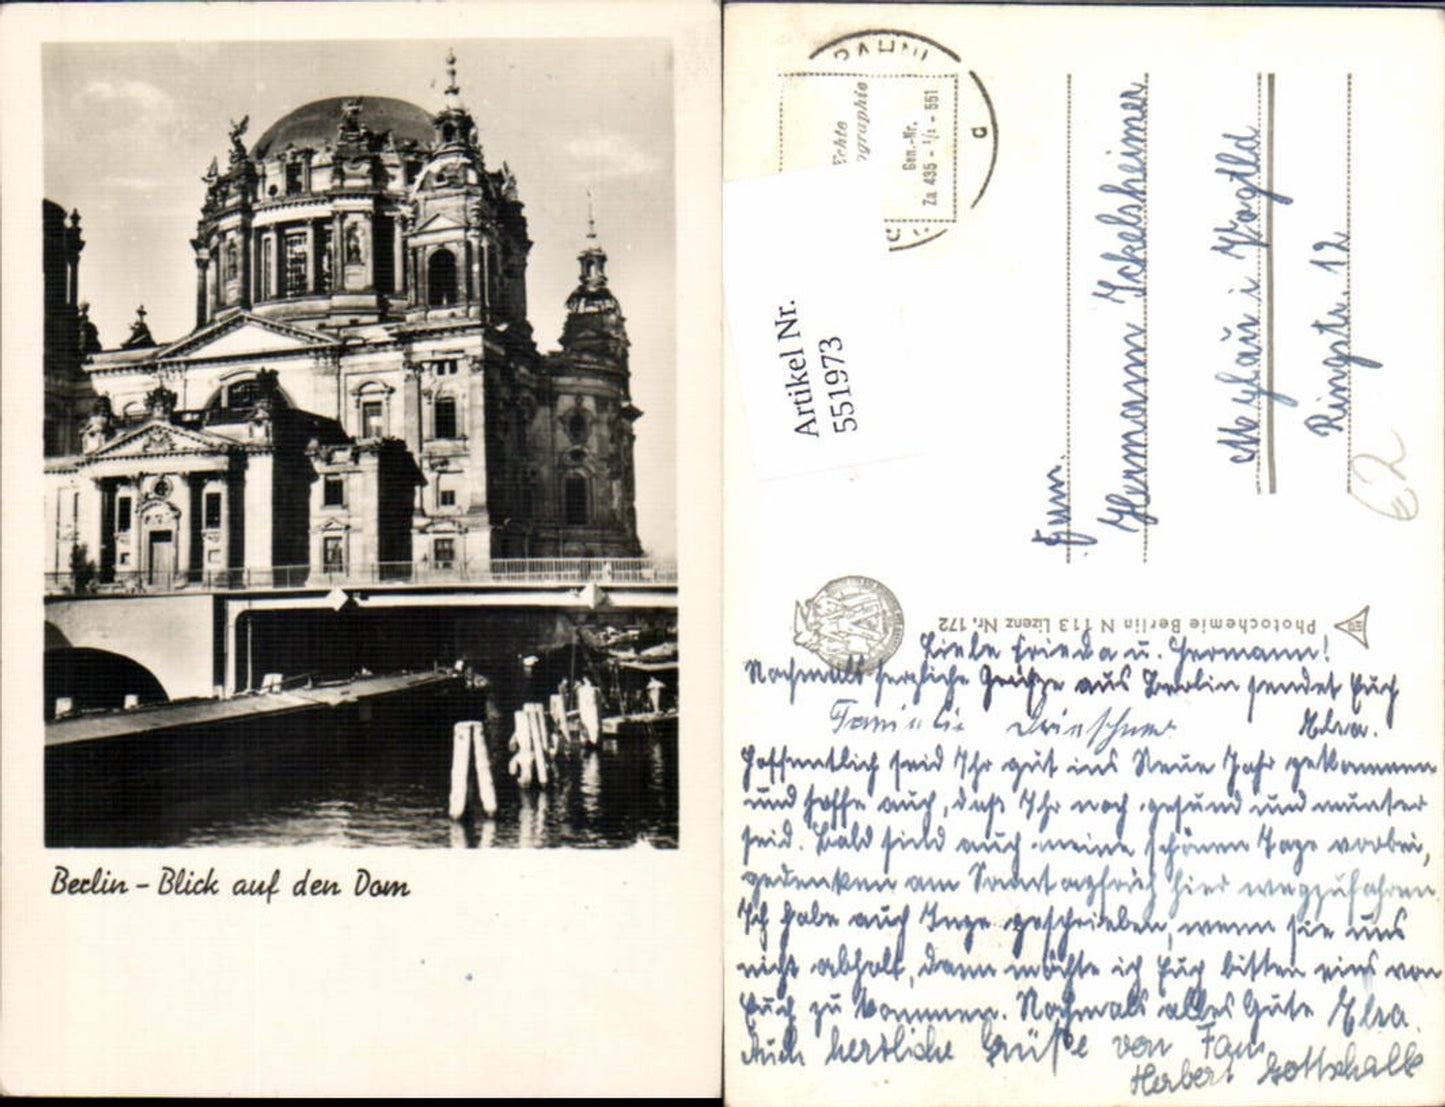 Berlin – Blick auf den Dom
BAHN
a
Echte
Gen.-Nr.
Za 435 – 1/1 – 551
Artikel Nr.
551973
Fam.
Hermann Ickelsheimer
Mehlaür i Vogtld
Ringstr. 12
€2
Photochemie Berlin N 113 Lizenz Nr. 172
Liebe Frieda u. Hermann!
Nochmals herzliche Grüße aus Berlin sendet Euch
Familie Drieschner Elsa.
Hoffentlich seid Ihr gut ins Neue Jahr gekommen
und hoffe auch, daß Ihr noch gesund und munter
seid. Bald sind auch meine schönen Tage vorbei,
gedenken am Sonntagfrüh hier wegzufahren.
Ich habe auch Inge geschrieben, wenn sie uns
nicht abholt, dann möchte ich Euch bitten eins von
Euch zu kommen. Nochmals alles Gute Elsa.
Auch herzliche Grüße von Fam
Herbert Gottschalk